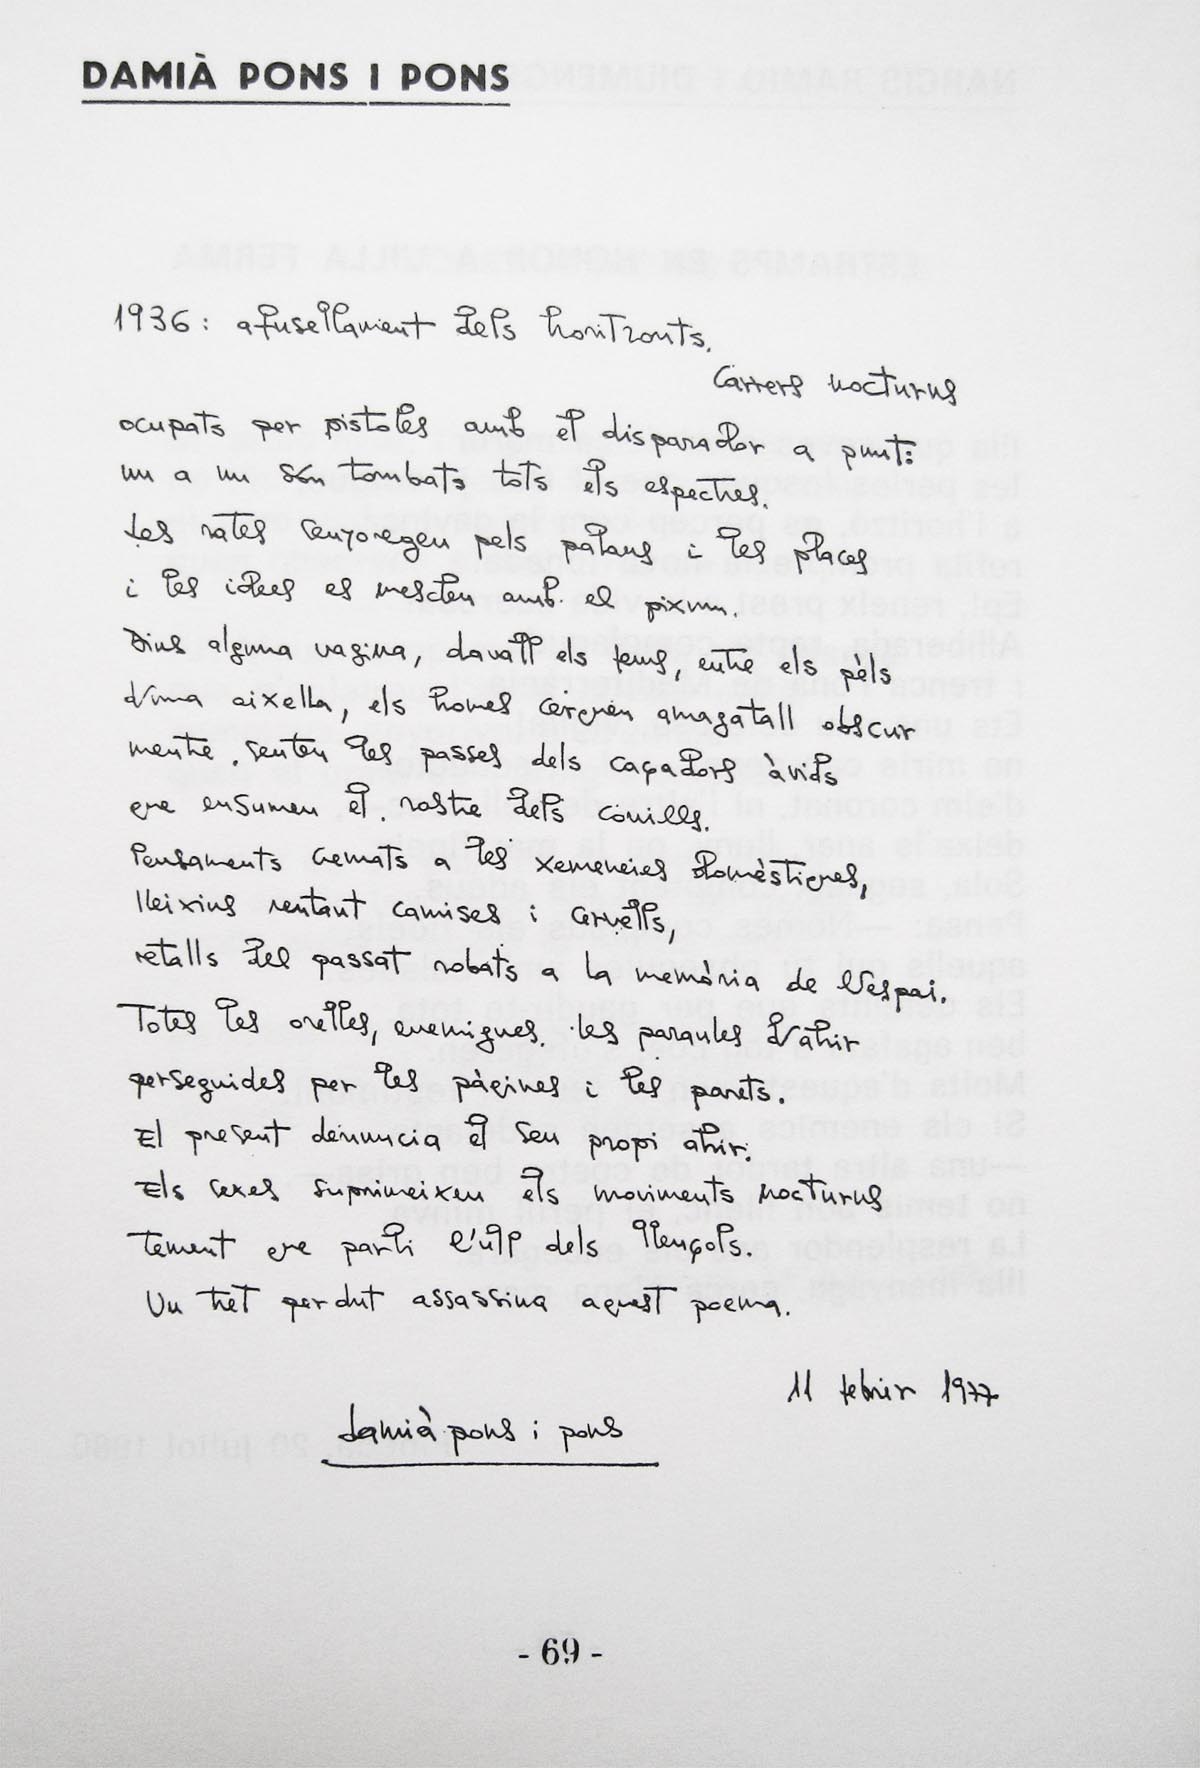 DAMIÀ PONS I PONS
1936: afusellament dels horitzonts.
Carrers nocturns
ocupats per pistoles amb el disparador a punt:
un a un són tombats tots els espectres.
Les rates senyoregeu pels patans i les places
i les idees es mesclen amb el pixum.
Dins alguna vagina, davall els fems, entre els pèls
d'una aixella, els homes cerquen amagatall obscur
mentre senten les passes dels caçadors àvids
que ensumen el rostre dels conills.
Pensaments cremats a les xemeneies domèstiques,
lleixius rentant camises i cervells,
retalls del passat robats a la memòria de l'espai.
Totes les orelles, enemigues. les paraules d'ahir
perseguides per les pàgines i les parets.
El present denuncia el seu propi ahir.
Els sexes suprimeixen els moviments nocturns
tement que parli l'ull dels llençols.
Un tret perdut assassina aquest poema.
11 febrer 1977
damià pons i pons
- 69 -